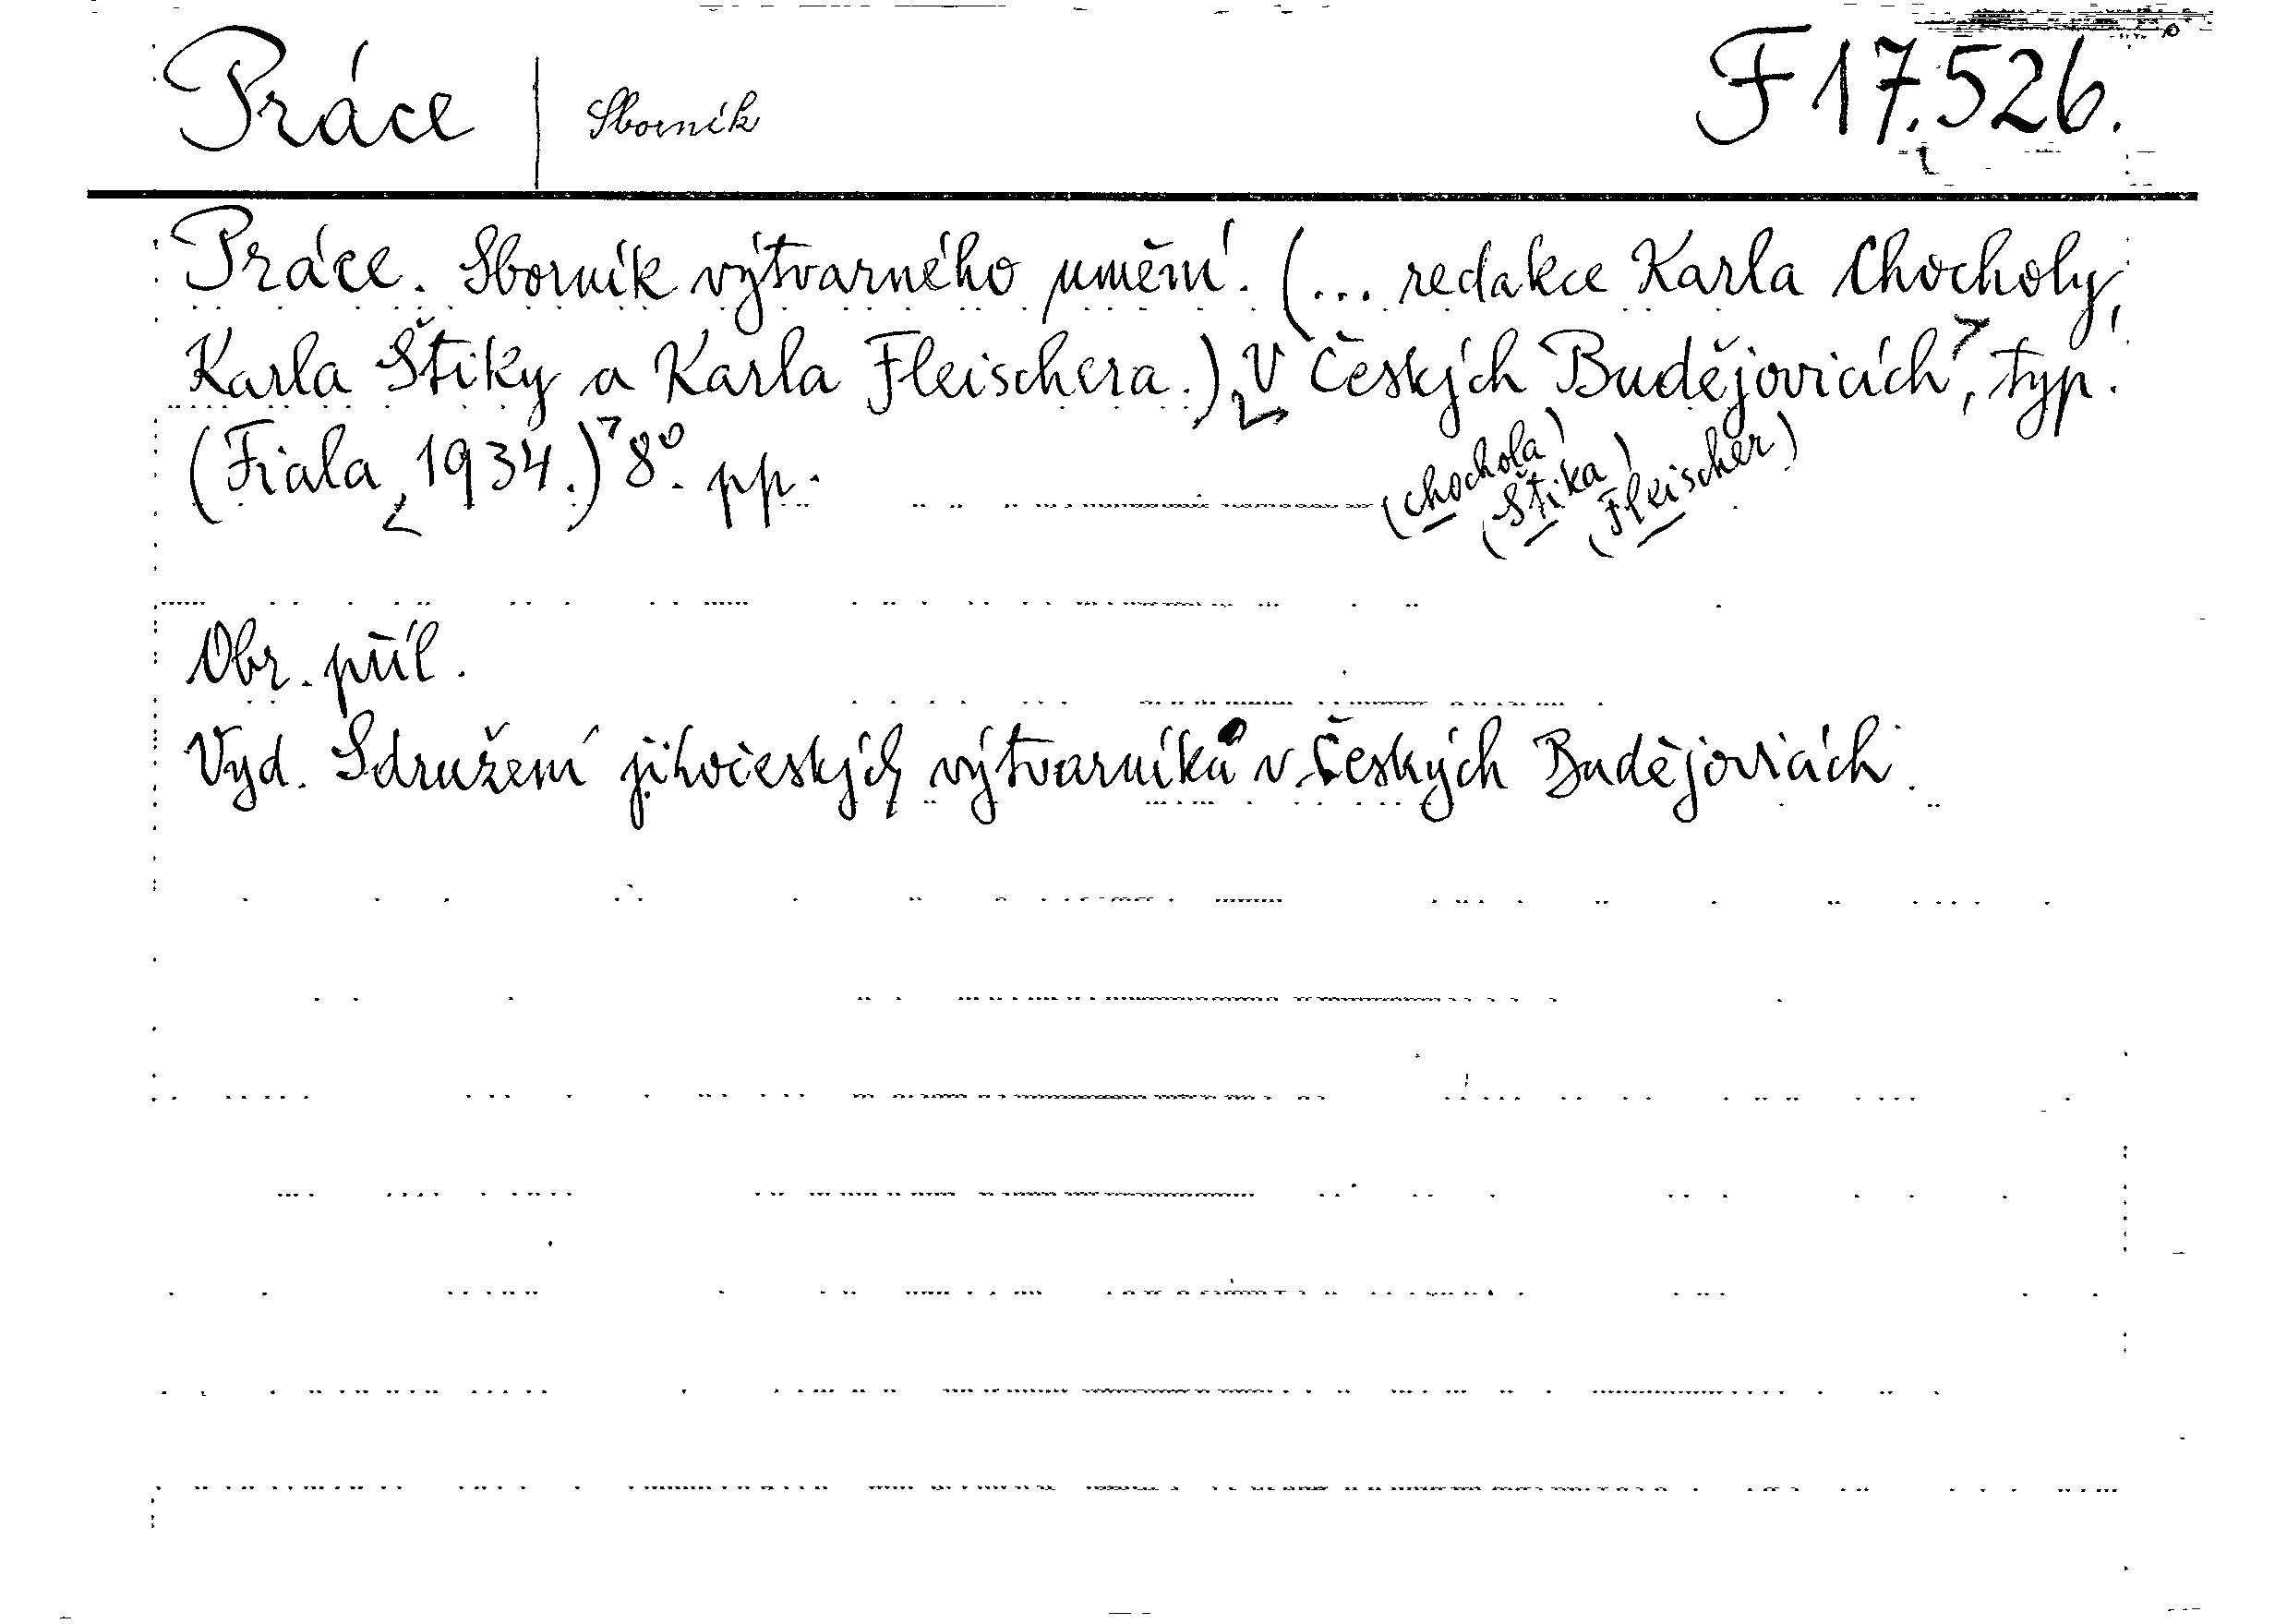 Práce | Sborník F 17.526.
Práce. Sborník výtvarného umění. (... redakce Karla Chocholy,
Karla Štiky a Karla Fleischera.) V Českých Budějovicích, typ.
(Fiala, 1934.) 8°. pp.
(Chochola)
(Štika)
(Fleischer)
Obr. příl.
Vyd. Sdružení jihočeských výtvarníků v Českých Budějovicích.